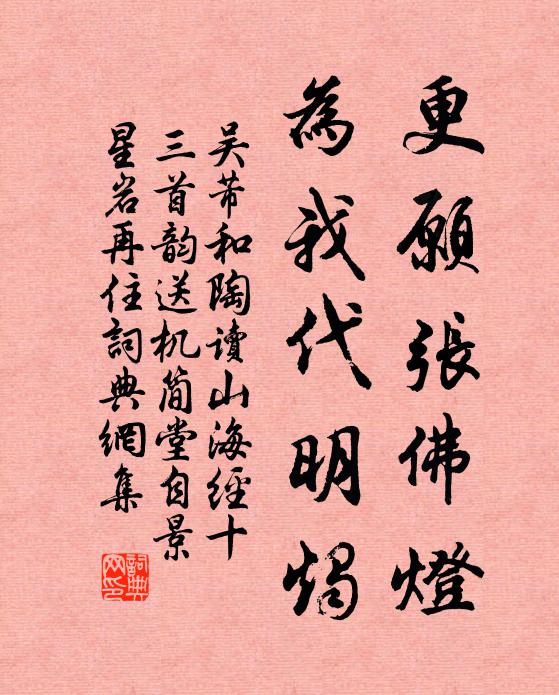 更願張佛燈
為我代明燭
吴芾和陶讀山海經十
三首韵送机简堂自景
星岩再住詞典網集
詞典
网印